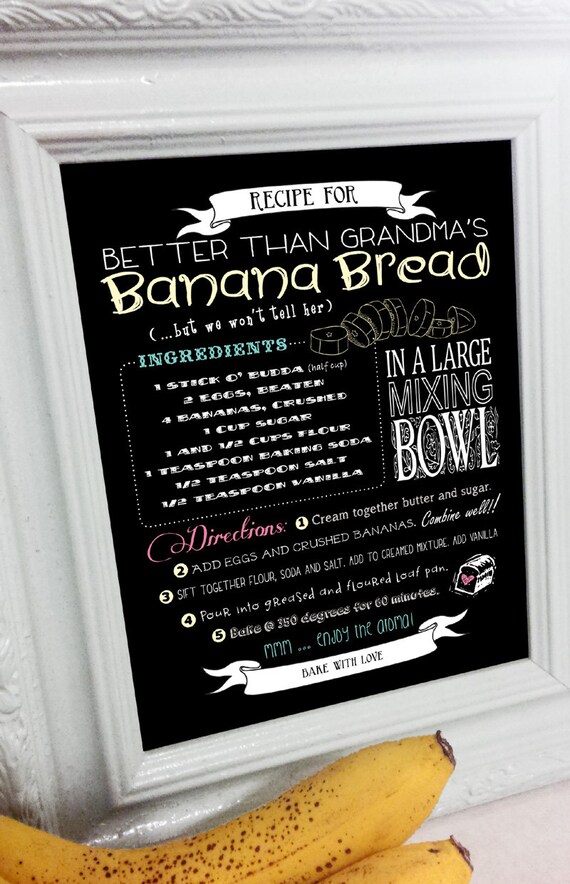 RECIPE FOR
BETTER THAN GRANDMA'S
Banana Bread
(...but we won't tell her)
INGREDIENTS
1 STICK O' BUDDA (half cup)
2 EGGS, BEATEN
4 BANANAS, CRUSHED
1 CUP SUGAR
1 AND 1/2 CUPS FLOUR
1 TEASPOON BAKING SODA
1/2 TEASPOON SALT
1/2 TEASPOON VANILLA
IN A LARGE
MIXING
BOWL
Directions: 1 Cream together butter and sugar.
2 ADD EGGS AND CRUSHED BANANAS. Combine well!!
3 SIFT TOGETHER FLOUR, SODA AND SALT. ADD TO CREAMED MIXTURE. ADD VANILLA
4 Pour into greased and floured loaf pan.
5 Bake @ 350 degrees for 60 minutes.
MMM ... ENJOY THE AROMA!
BAKE WITH LOVE